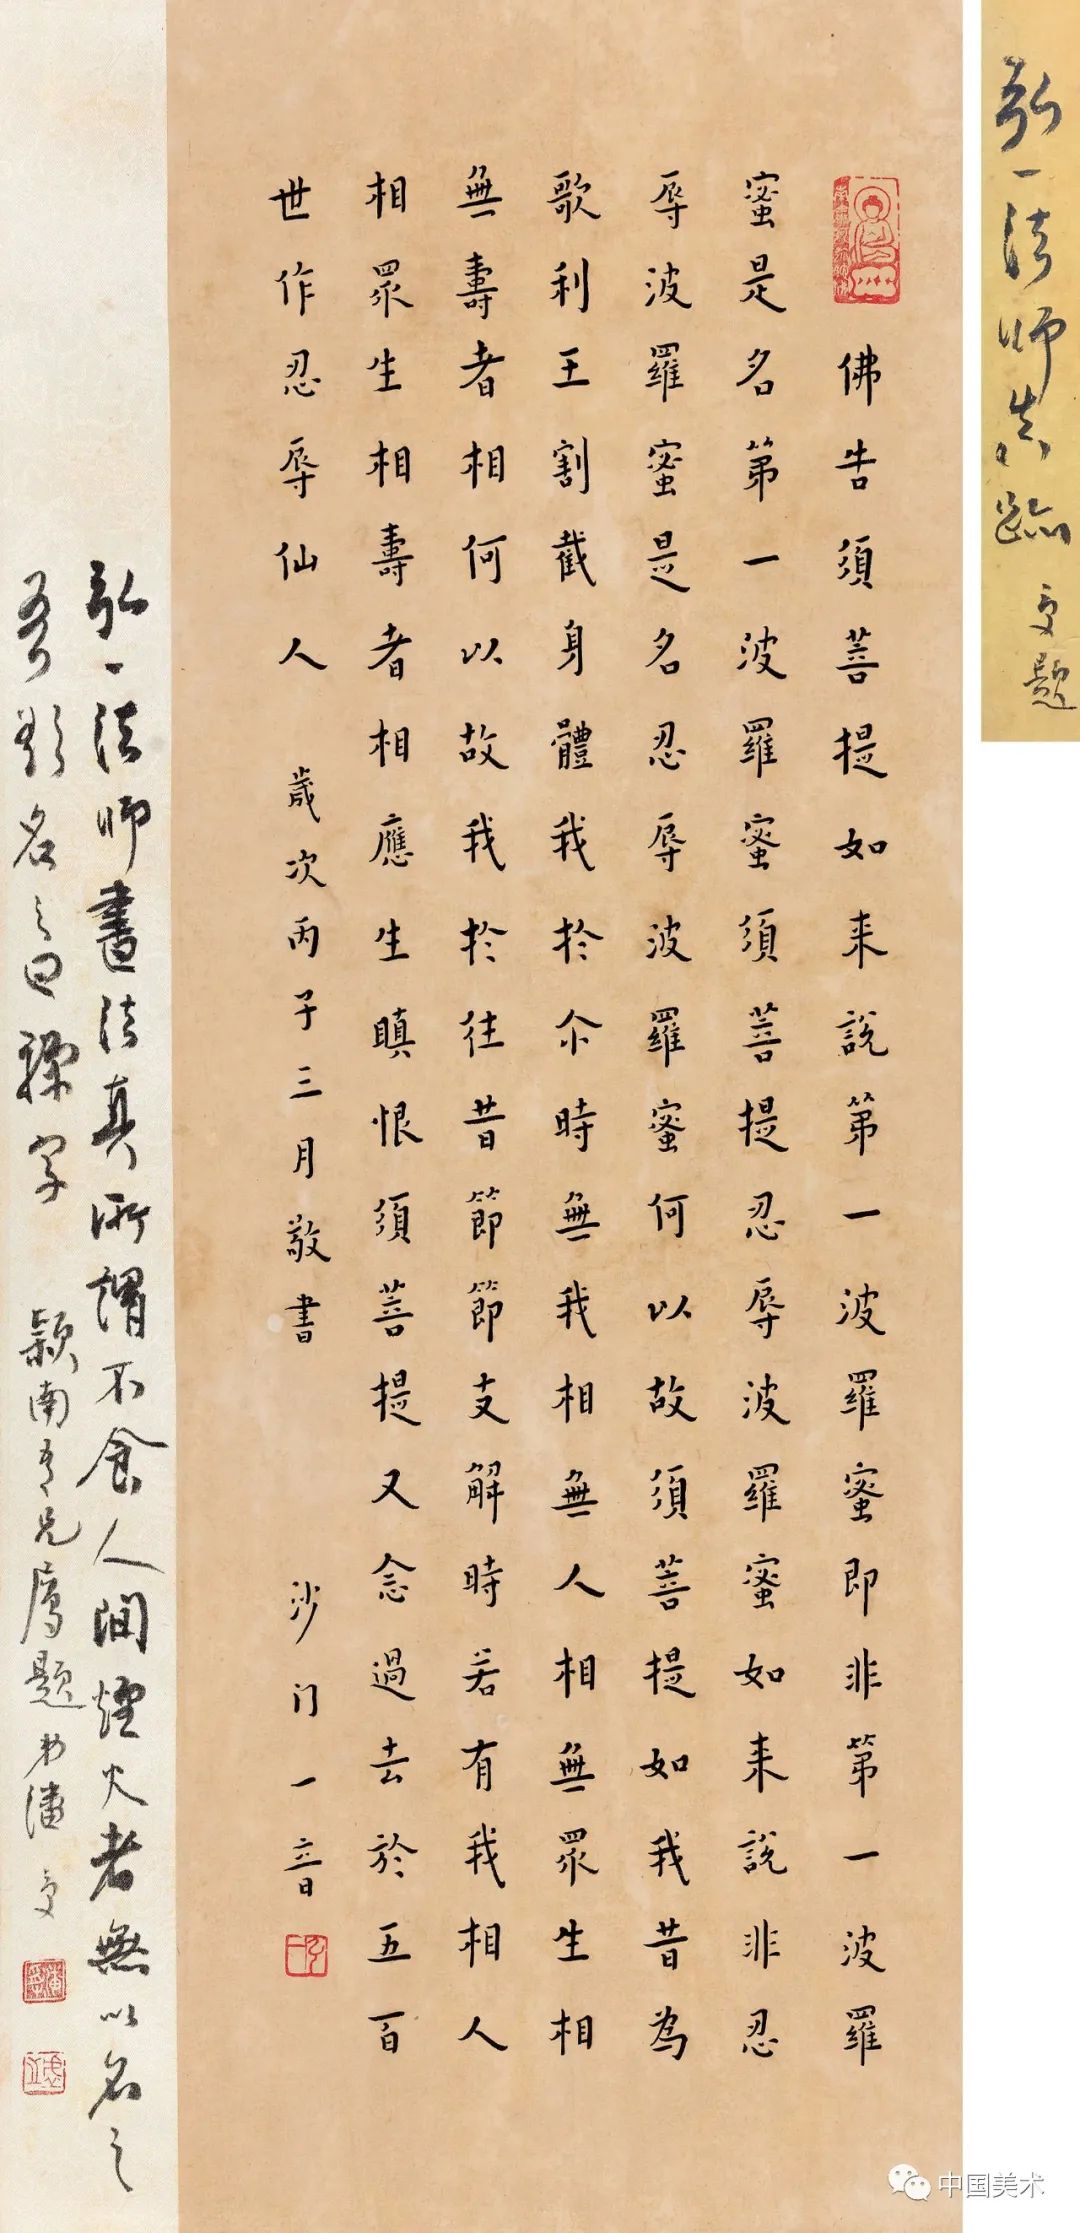 弘一法師真跡 受題
佛告須菩提如来說第一波羅蜜即非第一波羅
蜜是名第一波羅蜜須菩提忍辱波羅蜜如来說非忍
辱波羅蜜是名忍辱波羅蜜何以故須菩提如我昔為
歌利王割截身體我於尒時無我相無人相無眾生相
無壽者相何以故我於往昔節節支解時若有我相人
相眾生相壽者相應生瞋恨須菩提又念過去於五百
世作忍辱仙人 歲次丙子三月敬書 沙门一音
弘一法師書法真所謂不食人間煙火者無以名之
吾欲名之曰字 穎南吾兄屬題 弟潘受
中国美术